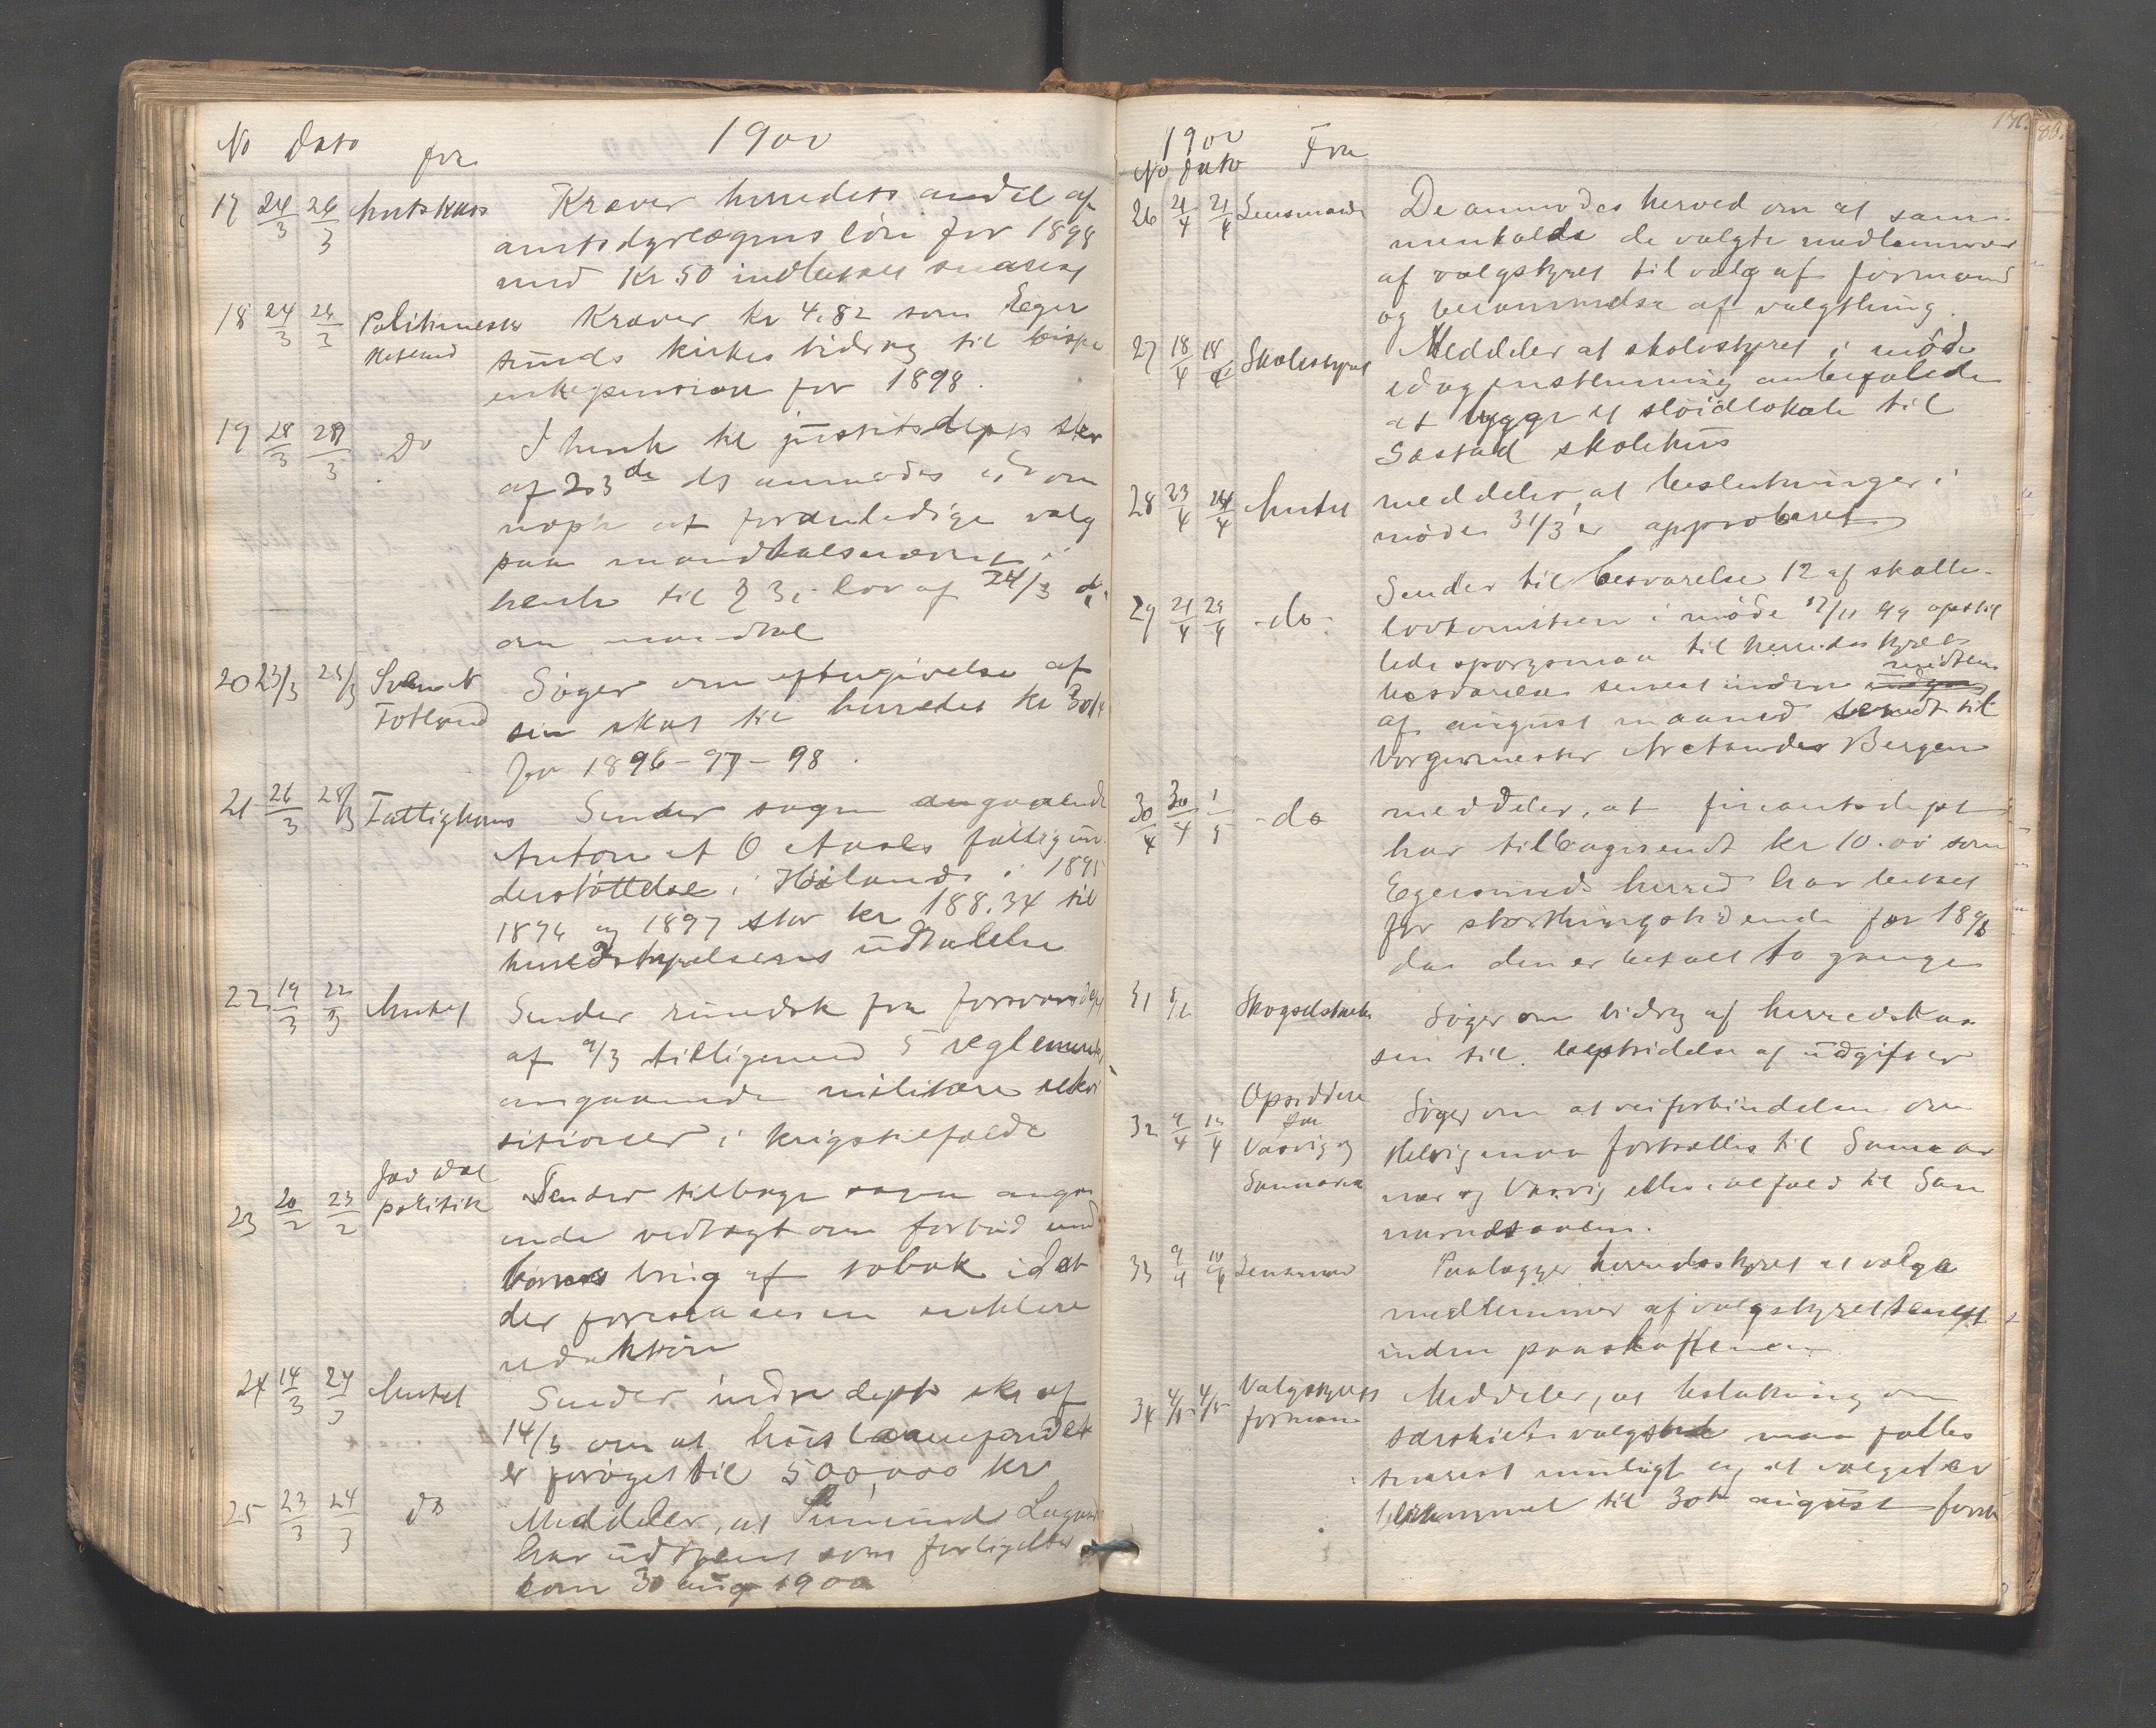 1900
No Dato fra
17 24/3 26/3 Amtskass Kræver herredets andel af
amtsdyrlægens løn for 1898
med Kr 50 indbetalt snarest
18 24/3 26/3 Politimester Kræver kr 4.82 som Eger
sunds kirkes bidrag til bispe
enkepension for 1898.
19 28/3 29/3 Do I henh til justitsdepts skr
af 23de ds anmodes om
at foranledige valg
paa mandtalsnævnet i
henh til § 3, lov af 24/3 d.a.
om mandtal
20 23/3 25/3 Svend
Fotland Søger om eftergivelse af
sin skat til herredet kr
for 1896-97-98.
21 26/3 28/3 Fattigkoms Sender sagen angaaende
Anton et O Aases fattigun-
derstøttelse i Høilands i 1895
1896 og 1897 stor kr 188.34 til
herredstyrelsens udtalelse
22 19/3 22/3 Amtet Sender rundsk fra forsvarsdept
af 9/3 tilligemed 5 reglement
angaaende militære rekvi
sitioner i krigstilfælde
23 20/2 23/2 for
politik Sender tilbage sagen angaa
ende vedtægt om forbud mod
børns brug af tobak idet
der foreslaaes en enklere
redaktion
24 14/3 24/3 Amtet Sender indre depts skr af
14/3 om at huslaanefondet
er forøget til 500,000 kr
25 23/3 24/3 do Meddeler, at Simund
har udtjent som forligelses
kom 30 aug 1900
1900
No dato Fra
26 21/4 21/4 Lensmand De anmodes herved om at sam-
menkalde de valgte medlemmer
af valgstyret til valg af formand
og berammelse af valgthing.
27 18/4 18/4 Skolestyret Meddeler at skolestyret i møde
idag enstemmig anbefalede
at bygge et sløidlokale til
skolehus
28 23/4 24/4 Amtet meddeler, at beslutninger i
møde 31/3 er approberet
29 21/4 24/4 -do- Sender til besvarelse 12 af skatte-
lovkomiteen i møde 17/11 99 opstil
lede spørgsmaal til herredsstyrets
besvarelse senest inden midten
af august maaned sendt til
borgermester Arctander Bergen
30 30/4 1/5 -do meddeler, at finantsdept
har tilbagesendt kr 10.00 som
Egersunds herred har betalt
for storthingstidende for 1898
da den er betalt to gange
31 Skogselskabet Søger om bidrag af herredskas
sen til bestridelse af udgifter
32 Opsiddere
fra
Vasvig og
Sannarnes Søger om at veiforbindelsen om
maa fortsættes til Sannar
nes og Vasvig eller ialfald til San
narnes
33 9/4 10/4 Lensmand Paalægger herredsstyret at vælge
medlemmer af valgstyret senest
inden paaskeaftenen
34 4/5 4/5 Valgstyrets
formand Meddeler, at beslutning om
særskilte valgsted maa fattes
snarest muligt og at valget er
berammet til 30te august